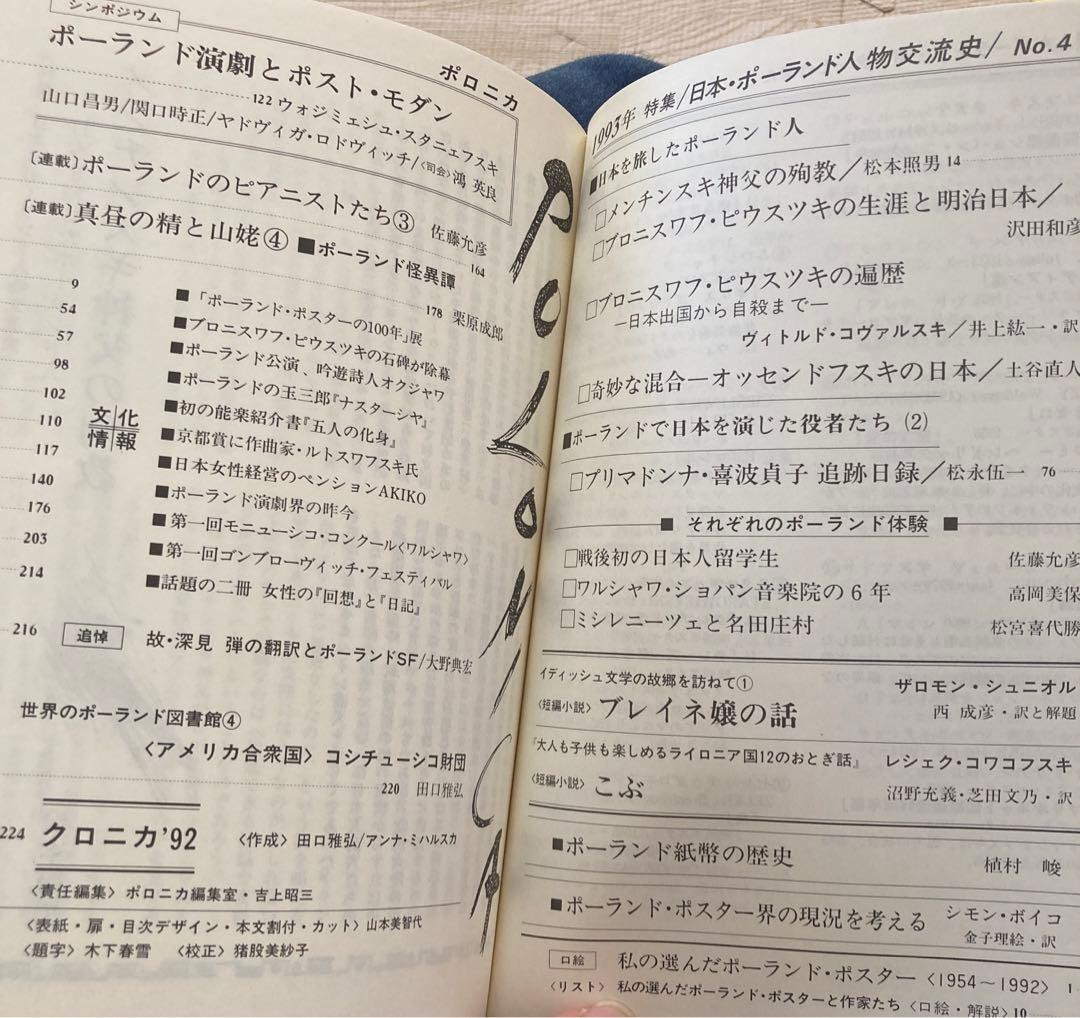 シンポジウム
ポーランド演劇とポスト・モダン
ポロニカ
122 ウォジミェシュ・スタニェフスキ
山口昌男/関口時正/ヤドヴィガ・ロドヴィッチ/〈司会〉鴻 英良
〔連載〕ポーランドのピアニストたち③ 佐藤允彦
164
〔連載〕真昼の精と山姥④ ■ポーランド怪異譚
178 栗原成郎
9
54
57
98
102
110
117
140
176
203
214
216
文化情報
■「ポーランド・ポスターの100年」展
■ブロニスワフ・ピウスツキの石碑が除幕
■ポーランド公演、吟遊詩人オクジャワ
■ポーランドの玉三郎『ナスターシャ』
■初の能楽紹介書『五人の化身』
■京都賞に作曲家・ルトスワフスキ氏
■日本女性経営のペンションAKIKO
■ポーランド演劇界の昨今
■第一回モニューシコ・コンクール〈ワルシャワ〉
■第一回ゴンブローヴィッチ・フェスティバル
■話題の二冊 女性の『回想』と『日記』
追悼 故・深見 弾の翻訳とポーランドSF/大野典宏
世界のポーランド図書館④
〈アメリカ合衆国〉 コシチューシコ財団
220 田口雅弘
224 クロニカ'92 〈作成〉 田口雅弘/アンナ・ミハルスカ
〈責任編集〉 ポロニカ編集室・吉上昭三
〈表紙・扉・目次デザイン・本文割付・カット〉山本美智代
〈題字〉木下春雪 〈校正〉猪股美紗子
POLONICA
1993年 特集/日本・ポーランド人物交流史/ No.4
■日本を旅したポーランド人
□メンチンスキ神父の殉教/松本照男 14
□ブロニスワフ・ピウスツキの生涯と明治日本/
沢田和彦
□ブロニスワフ・ピウスツキの遍歴
—日本出国から自殺まで—
ヴィトルド・コヴァルスキ/井上紘一・訳
□奇妙な混合—オッセンドフスキの日本/土谷直人
■ポーランドで日本を演じた役者たち (2)
□プリマドンナ・喜波貞子 追跡日録/松永伍一 76
■ それぞれのポーランド体験 ■
□戦後初の日本人留学生 佐藤允彦
□ワルシャワ・ショパン音楽院の6年 高岡美保
□ミシレニーツェと名田庄村 松宮喜代勝
イディッシュ文学の故郷を訪ねて① ザロモン・シュニオル
〈短編小説〉 ブレイネ嬢の話 西 成彦・訳と解題
『大人も子供も楽しめるライロニア国12のおとぎ話』 レシェク・コワコフスキ
〈短編小説〉 こぶ 沼野充義・芝田文乃・訳
■ポーランド紙幣の歴史 植村 峻
■ポーランド・ポスター界の現況を考える シモン・ボイコ
金子理絵・訳
口絵 私の選んだポーランド・ポスター〈1954〜1992〉 1
〈リスト〉 私の選んだポーランド・ポスターと作家たち〈口絵・解説〉10